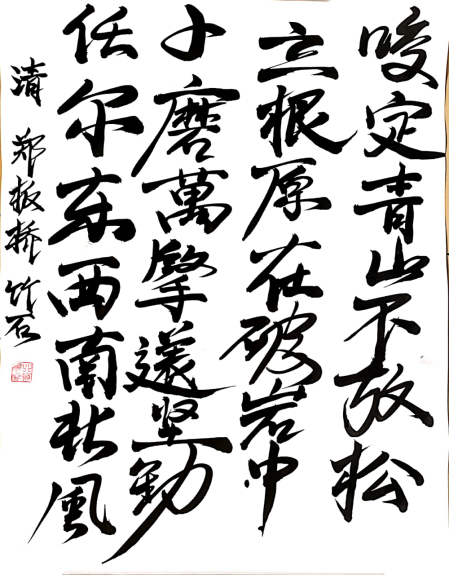 咬定青山不放松
立根原在破岩中
千磨萬擊還坚勁
任尔东西南北風
清 郑板桥 竹石